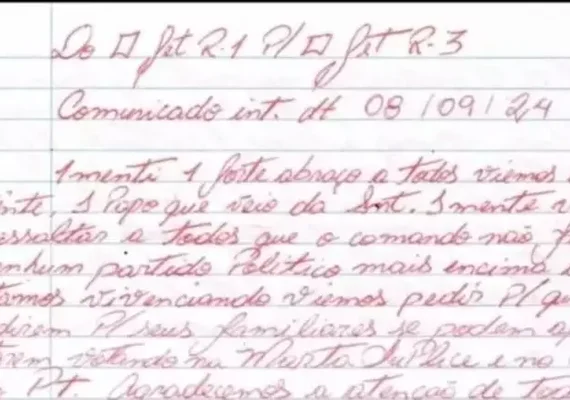 Do □ Jet R.1 P/ □ Jet R-3
Comunicado int. dt 08/09/24
1menti 1 forte abraço a todos viemos
inte, 1 Papo que veio da Snt. 1mente v
essaltar a todos que o comando não f
enhum partido Politico mais encima
tamos vivenciando viemos pedir P/ qu
direm P/ seus familiares se podem ap
arem votando na Marta Suplice e no
PT. Agradecemos a atenção de tod